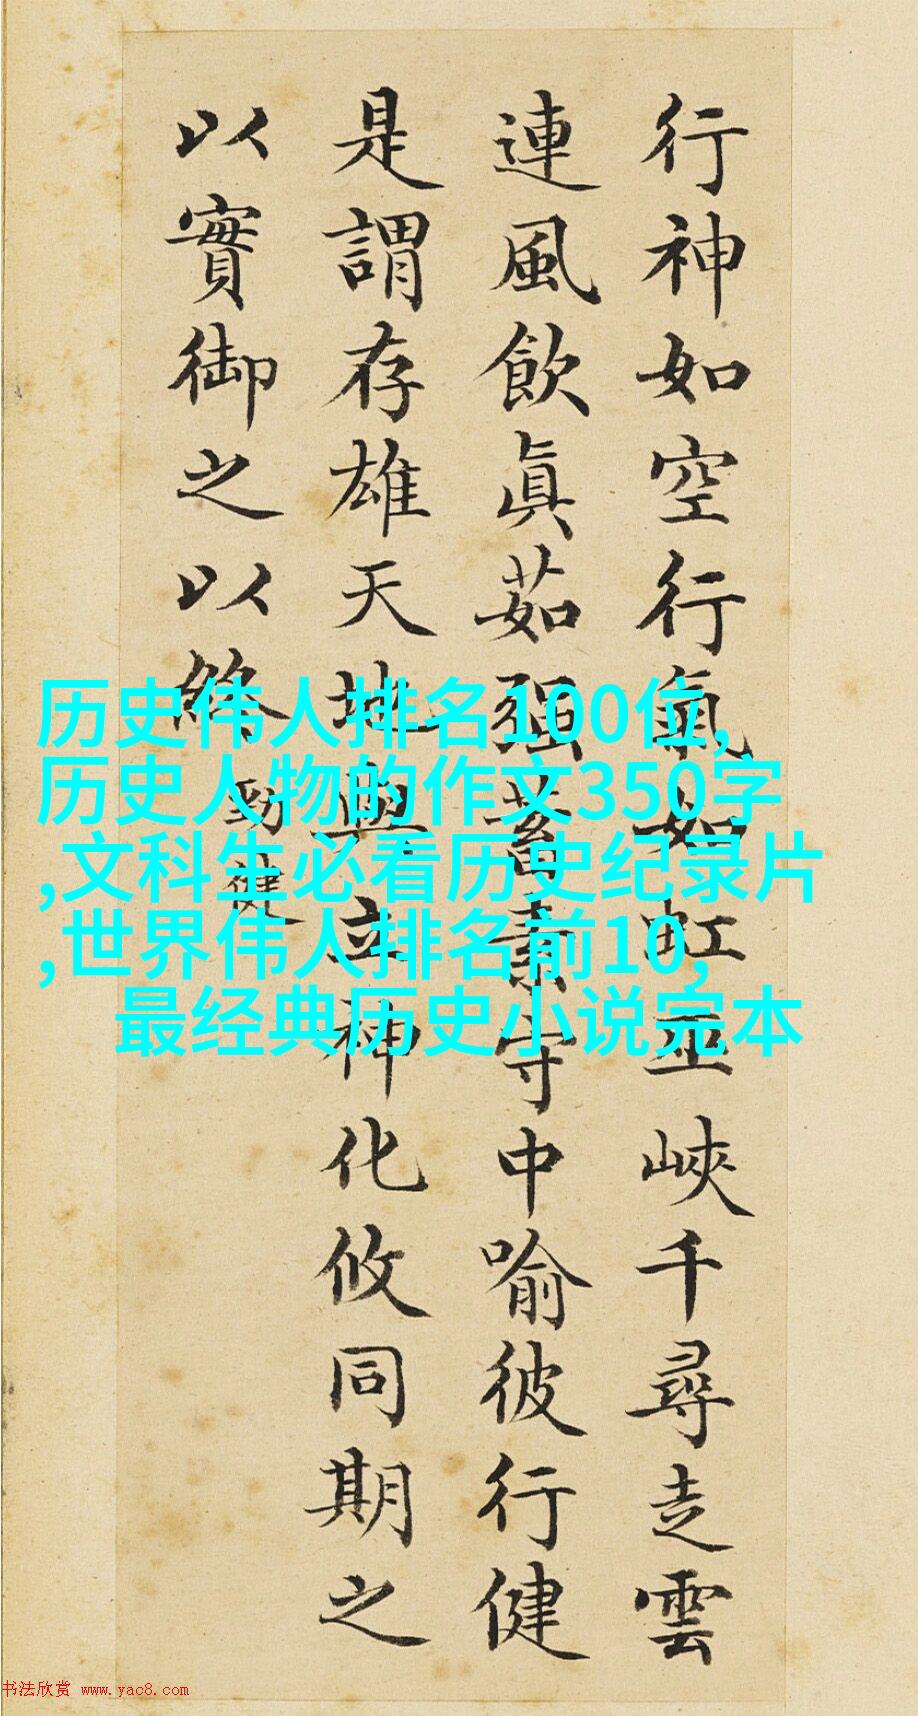 行神如空行氣如虹巫峽千尋走雲
連風飲眞茹强蓄素守中喻彼行健
是謂存雄天地與立神化攸同期之
以實御之以終 勁健
历史伟人排名100位,
历史人物的作文350字
,文科生必看历史纪录片
,世界伟人排名前10,
最经典历史小说完本
书法欣赏 www.yac8.com